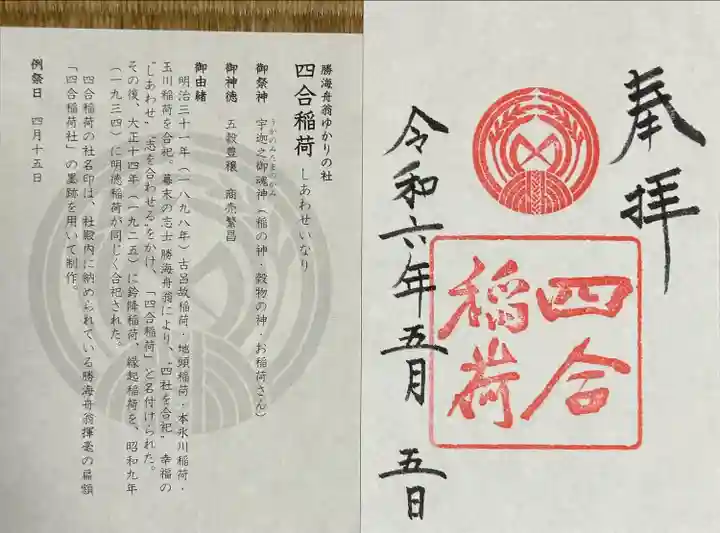 勝海舟翁ゆかりの社
四合稲荷 しあわせいなり
御祭神 宇迦之御魂神(稲の神・穀物の神・お稲荷さん)
うかのみたまのかみ
御神徳 五穀豊穣 商売繁昌
御由緒
明治三十一年(一八九八年)古呂故稲荷・地頭稲荷・本氷川稲荷・
玉川稲荷を合祀。幕末の志士勝海舟翁により、"四社を合祀" 幸福の
"しあわせ"、志を合わせる"をかけ、「四合稲荷」と名付けられた。
その後、大正十四年(一九二五)に鈴降稲荷、縁起稲荷を、昭和九年
(一九三四)に明徳稲荷が同じく合祀された。
四合稲荷の社名印は、社殿内に納められている勝海舟翁揮毫の扁額
「四合稲荷社」の墨跡を用いて制作。
例祭日 四月十五日
奉拝
四合
稲荷
令和六年五月 五日